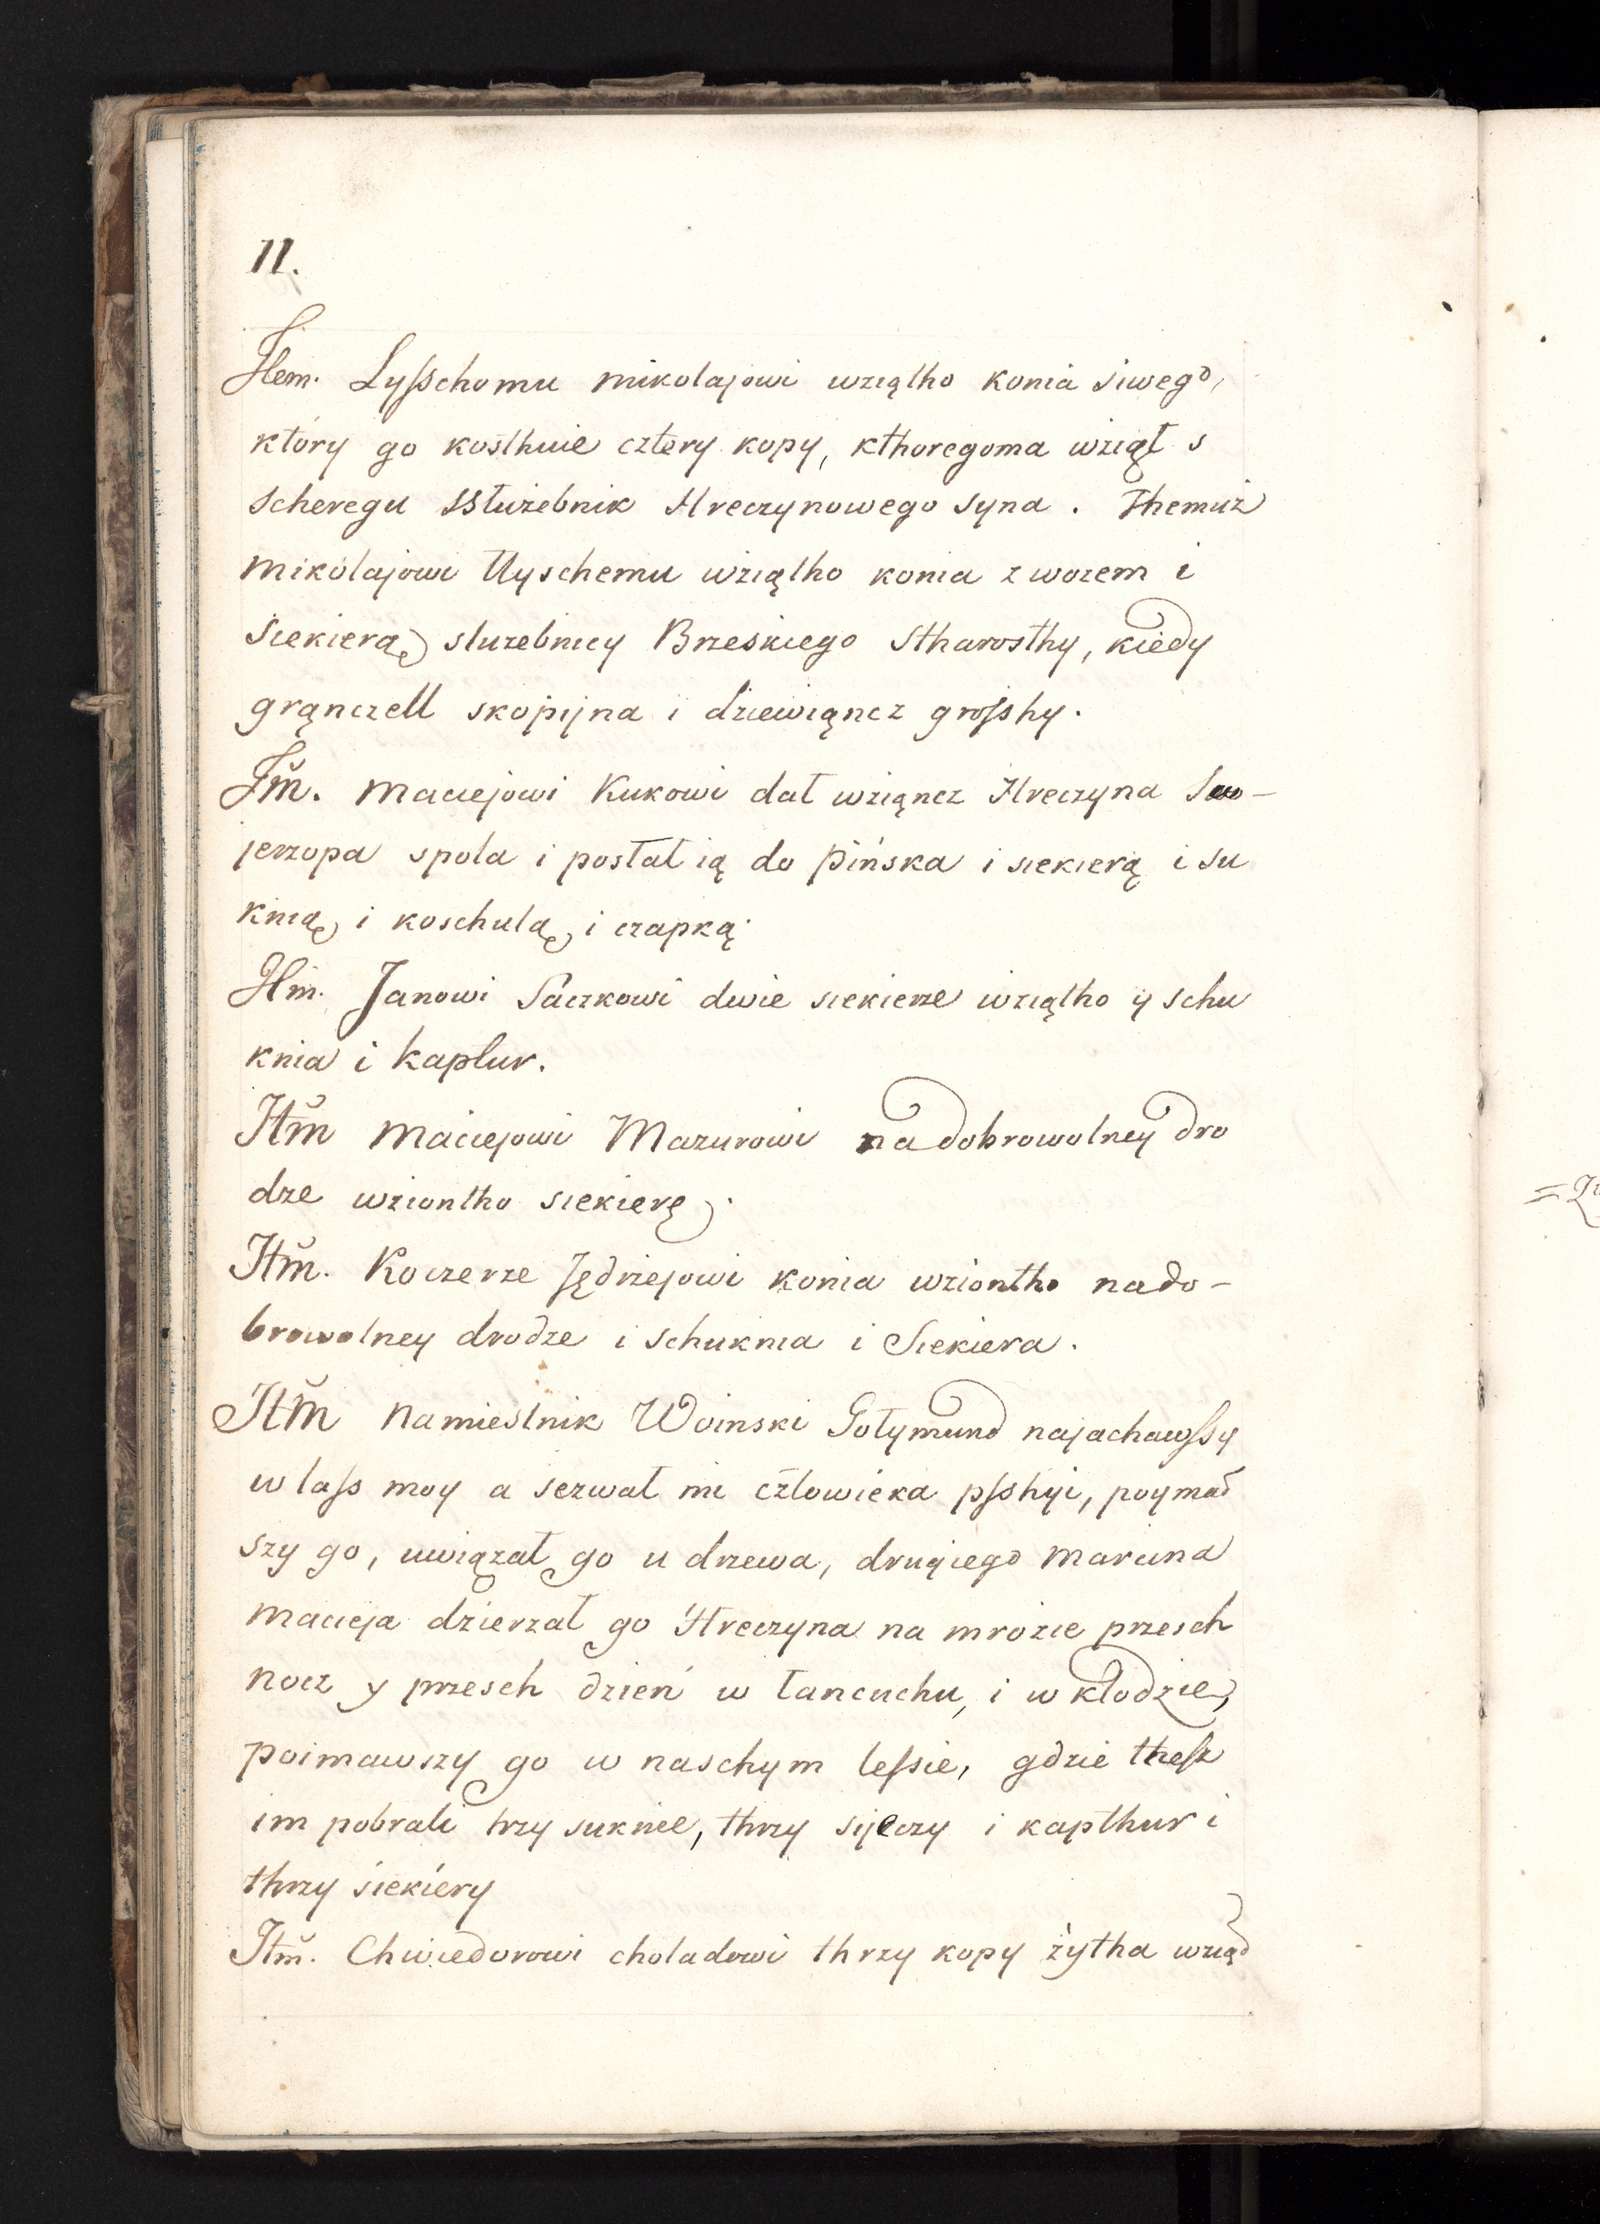 11.
Item. Lyſschomu mikolajowi wziątho konia siwego,
który go kosthuie cztery kopy, kthoregoma wziął s
scheregu ssłużebnik Hreczynowego syna. Themuż
mikolajowi Uyschemu wziątho konia z wozem i
siekierą służebnicy Brzeskiego Stharosthy, kiedy
grąnczell skopijna i dziewiąncz groſshy.
Itm̃. maciejowi Kukowi dał wziąncz Hreczyna
jerzopa spola i posłał ią do pińska i siekierą i su
knią i koschulą i czapką
Itm. Janowi Saczkowi dwie siekierze wziątho y schu
knia i kaptur.
Itm̃ maciejowi Mazurowi na dobrowolney dro
dze wziontho siekierę.
Itm̃. Koczerze Jędrzejowi konia wziontho nado-
browolney drodze i schuknia i Siekiera.
Itm̃ namiestnik Woinski Gołymund najachawſsy
w laſs moy a sezwał mi człowieka pſshyi, poymaw
szy go, uwiązał go u drzewa, drugiego marcina
macieja dzierzał go Hreczyna na mrozie przesch
nocz y przesch dzień w łancuchu, i w kłodzie,
poimawszy go w naschym leſsie, gdzie theſz
im pobrali trzy suknie, thrzy sijeczy i kapthur i
thrzy siekiery
Itm̃. Chwiedorowi choladowi thrzy kopy żytha wziąd